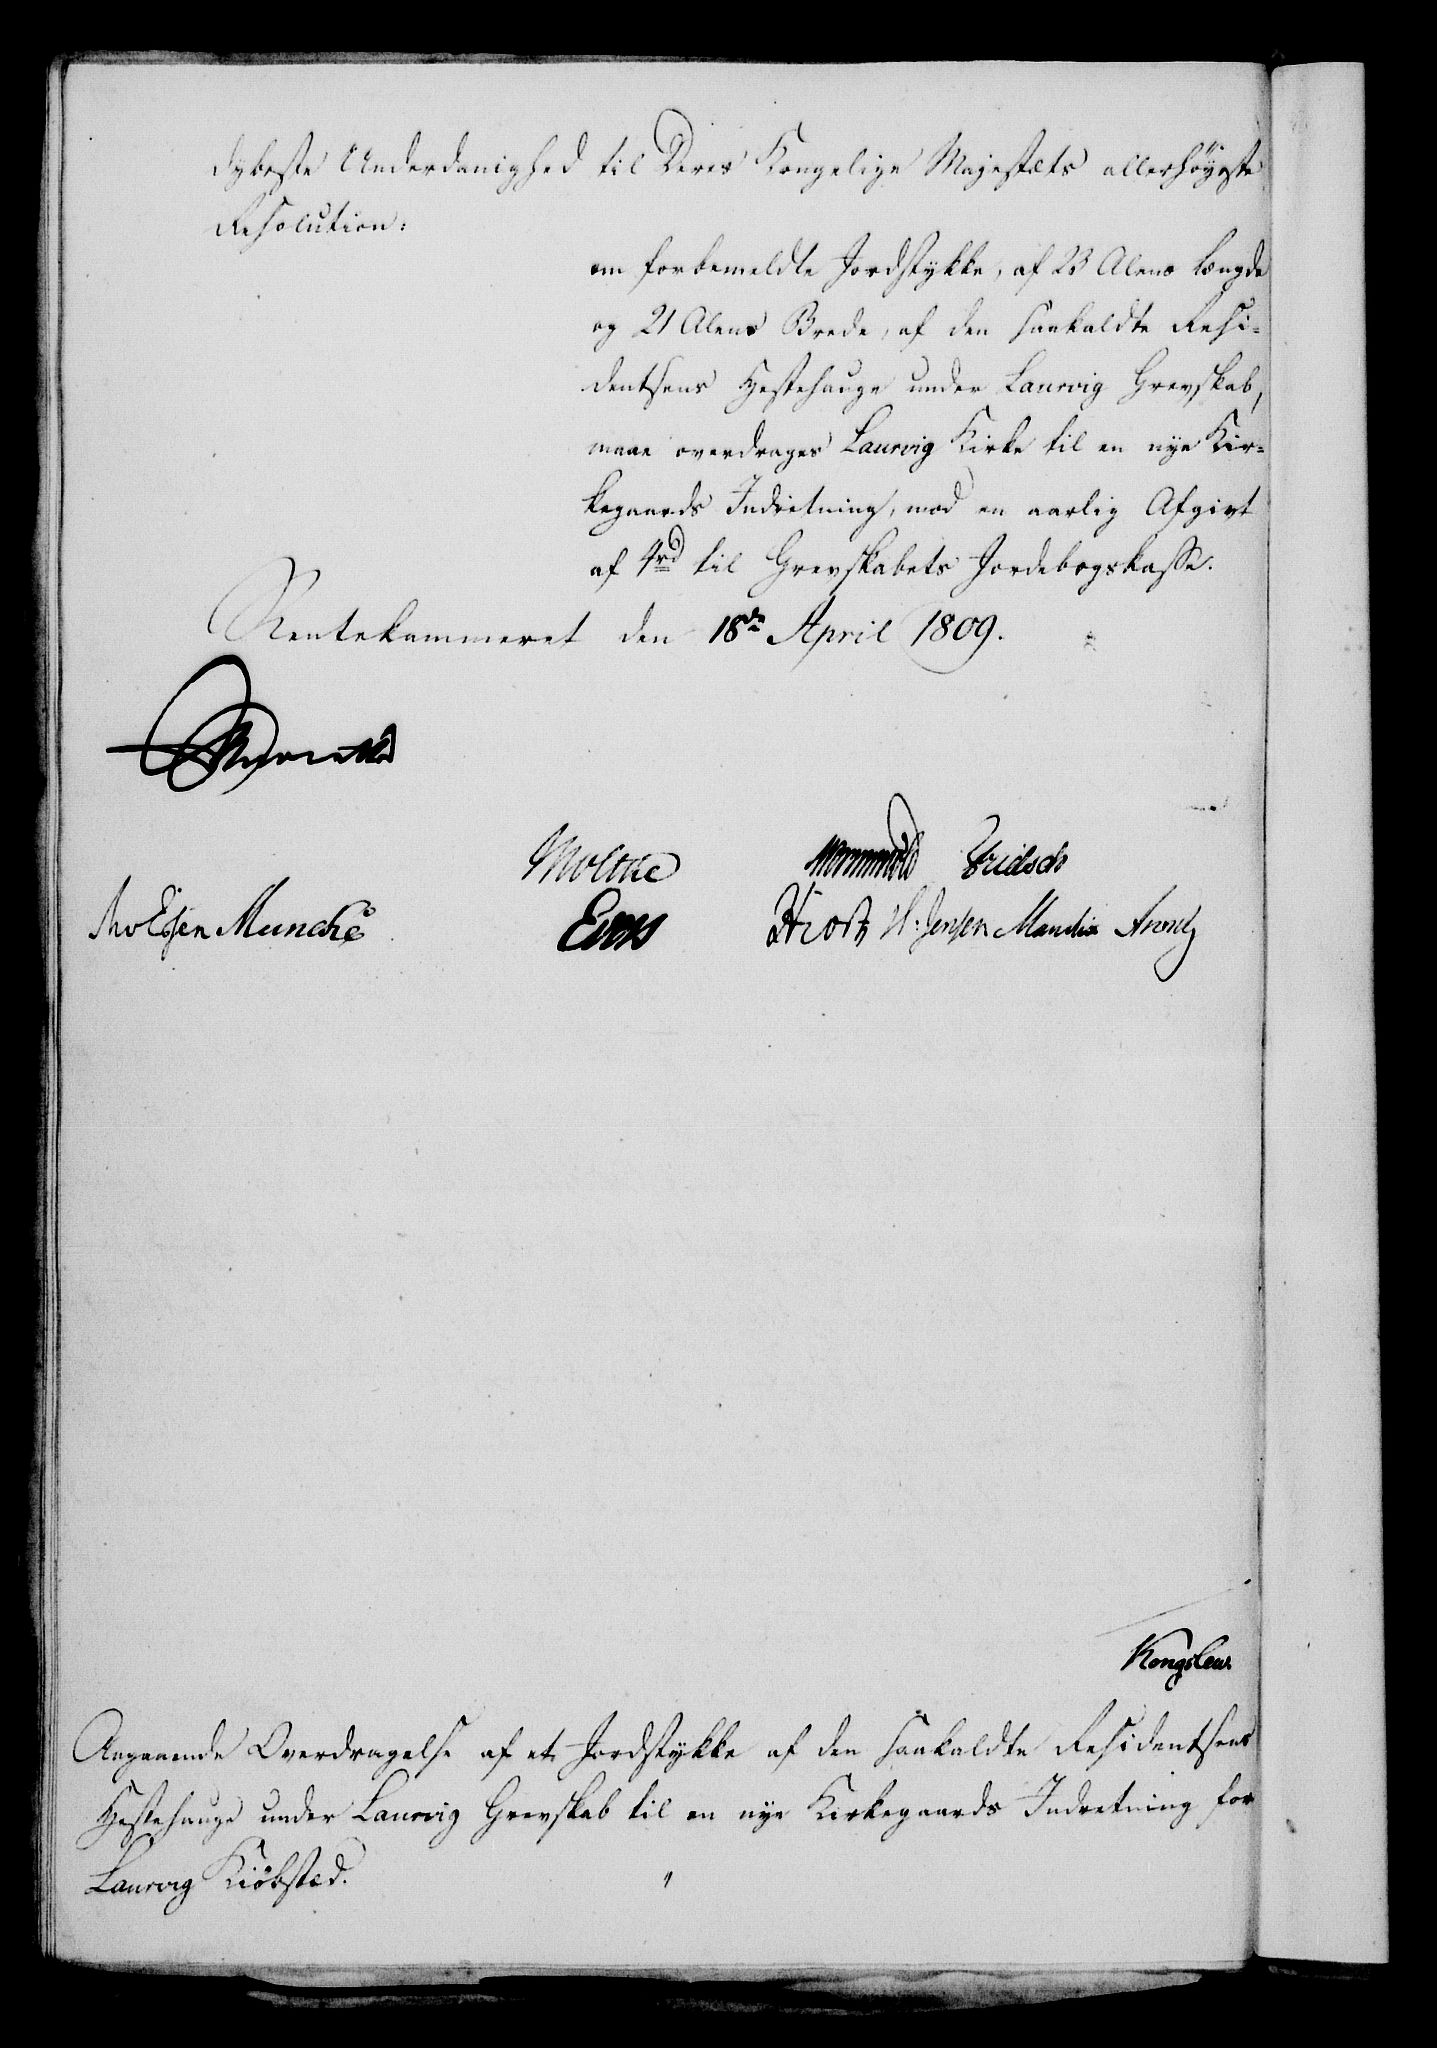 dybeste Underdanighed til Deres Kongelige Majestæts allerhøyeste
Resolution:
om forbemeldte Jordstykke, af 23 Alens Længde
og 21 Alens Brede, af den saakaldte Resi-
dentsens Hestehauge under Laurvig Grevskab,
maae overdrages Laurvig Kirke til en nye Kir-
kegaards Indretning, mod en aarlig Afgivt
af 4rd til Grevskabets Jordebogskasse.
Rentekammeret den 18de April 1809.
Moltke Wormskiold Fridsch
Munche Evers Hiort H: Jensen Manthey Arontz
Kongslew.
Angaaende Overdragelse af et Jordstykke af den saakaldte Residentsens
Hestehauge under Laurvig Grevskab til en nye Kirkegaards Indretning for
Laurvig Kiöbstæd.